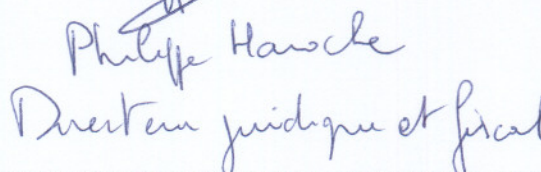 Philippe Haroche
Directeur juridique et fiscal